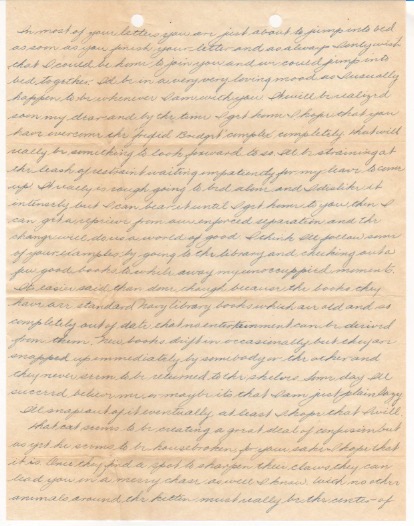 In most of your letters you are just about to jump into bed
as soon as you finish your letter and as always I only wish
that I could be home to join you and we could jump into
bed together. I'd be in a very very loving mood as I usually
happen to be whenever I am with you. It will be realized
soon my dear and by the time I get home I hope that you
have overcome the "Frigid Bridget" complex completely, that will
really be something to look forward to so I'll be straining at
the leash of restraint waiting impatiently for my leave to come
up. It really is rough going to bed alone and I dislike it
intensely but I can bear it until I get home to you, then I
can get a reprieve from our enforced separation and the
change will do us a world of good. I think I'll follow some
of your examples by going to the library and checking out a
few good books to while away my unoccupied moments.
It's easier said than done, though because the books they
have are standard Navy library books which are old and so
completely out of date that no entertainment can be derived
from them. New books drift in occasionally but they are
snapped up immediately by somebody or the other and
they never seem to be returned to the shelves. Some day I'll
succeed believe me or maybe its that I am just plain lazy.
I'll snap out of it eventually, at least I hope that I will.
That cat seems to be creating a great deal of confusion but
as yet he seems to be housebroken, for your sake I hope that
it is. Once they find a spot to sharpen their claws they can
lead you on a merry chase as well I know. With no other
animals around the kitten must really be the center of